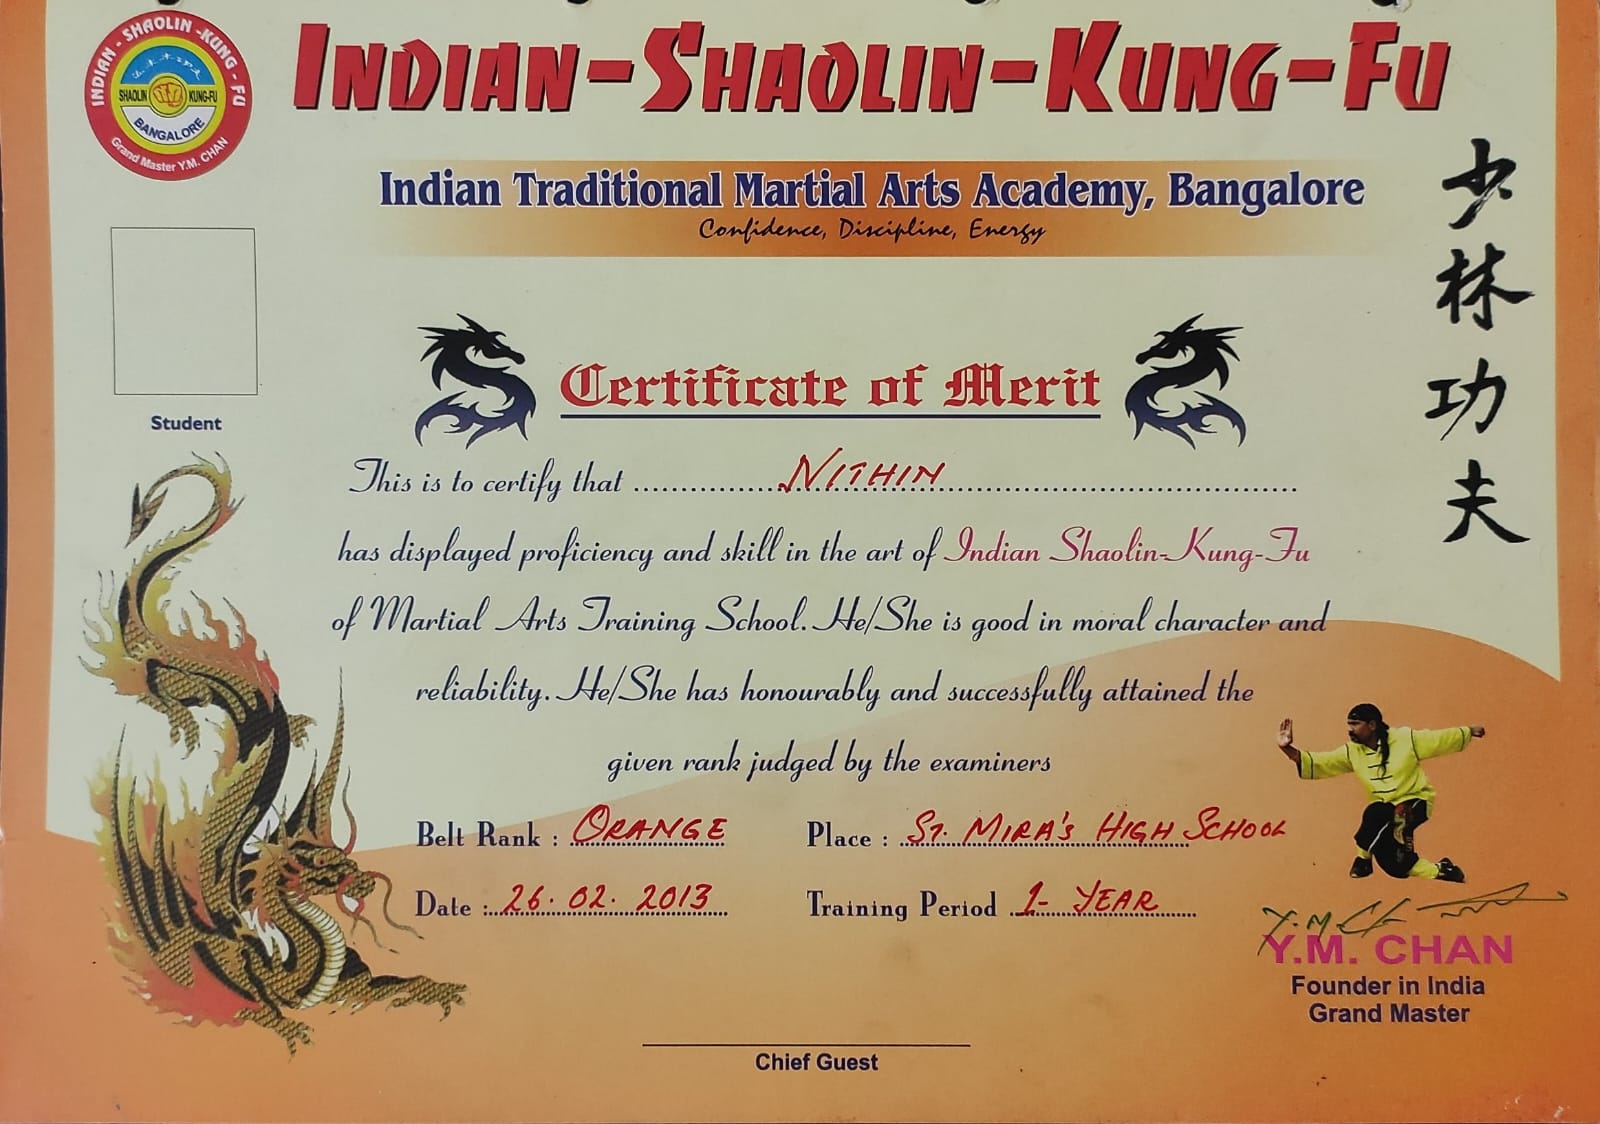 INDIAN - SHAOLIN - KUNG - FU
SHAOLIN KUNG-FU
BANGALORE
Grand Master Y.M. CHAN
INDIAN-SHAOLIN-KUNG-FU
Indian Traditional Martial Arts Academy, Bangalore
Confidence, Discipline, Energy
少林功夫
Student
Certificate of Merit
This is to certify that NITHIN
has displayed proficiency and skill in the art of Indian Shaolin-Kung-Fu
of Martial Arts Training School. He/She is good in moral character and
reliability. He/She has honourably and successfully attained the
given rank judged by the examiners
Belt Rank : ORANGE Place : ST. MIRA'S HIGH SCHOOL
Date : 26.02.2013 Training Period 1- YEAR
Y.M. CHAN
Founder in India
Grand Master
Chief Guest